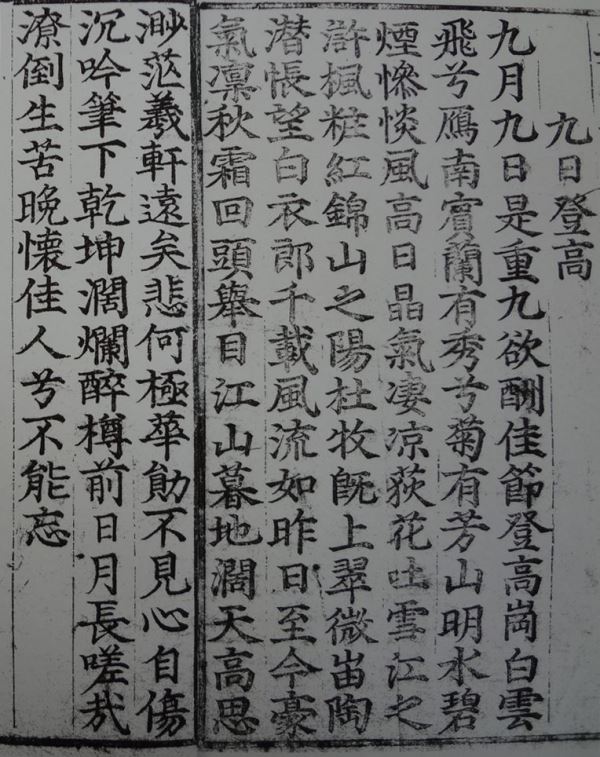 九日登高
九月九日是重九欲酬佳節登高崗白雲
飛兮鴈南賓蘭有秀兮菊有芳山明水碧
煙慘惔風高日晶氣凄凉荻花吐雪江之
滸楓粧紅錦山之陽杜牧旣上翠微峀陶
潛悵望白衣郎千載風流如昨日至今豪
氣凜秋霜回頭舉目江山暮地濶天高思
渺茫羲軒遠矣悲何極華勛不見心自傷
沉吟筆下乾坤濶爛醉樽前日月長嗟哉
潦倒生苦晚懷佳人兮不能忘